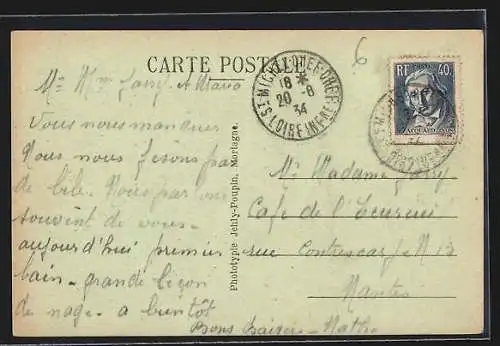 CARTE POSTALE
Mr Mme Garry et Maria
Vous nous manquez
Nous nous faisons pas
de bile. Nous parlons
souvent de vous -
aujourd'hui premier
bain - grande leçon
de nage - a bientôt
Bons Baisers -
Phototypie Jehly-Poupin, Mortagne.
ST MICHEL CHEF CHEF
18 *
20 - 8
34
LOIRE INFRE
RF 40c
JACQUARD
Mr Madame Garry
Café de l'
rue Contrescarpe No 13
Nantes